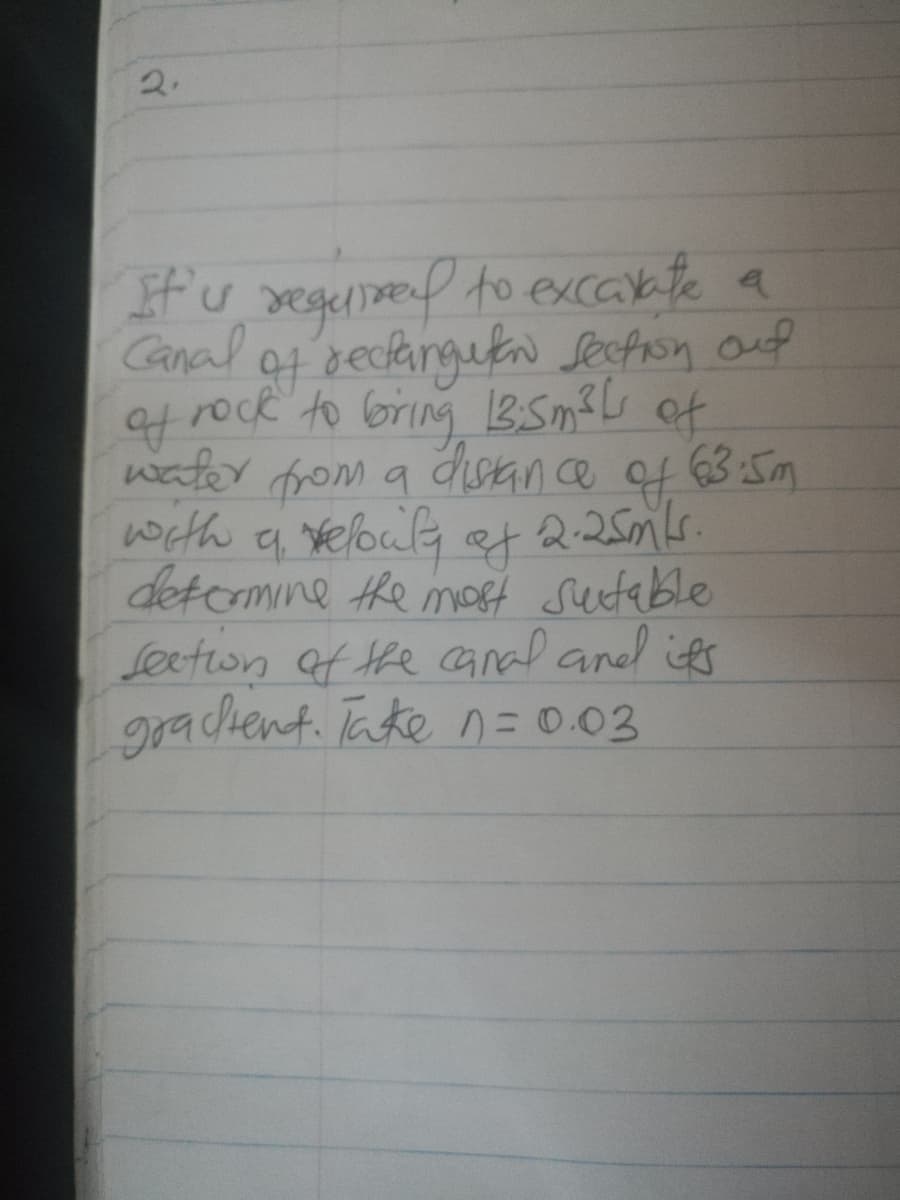 2.
It is required to excavate a
Canal of rectangular section out
of rock to bring 13.5m³/s of
water from a distance of 63.5m
with a velocity of 2.25m/s.
determine the most suitable
section of the canal and its
gradient. Take n = 0.03